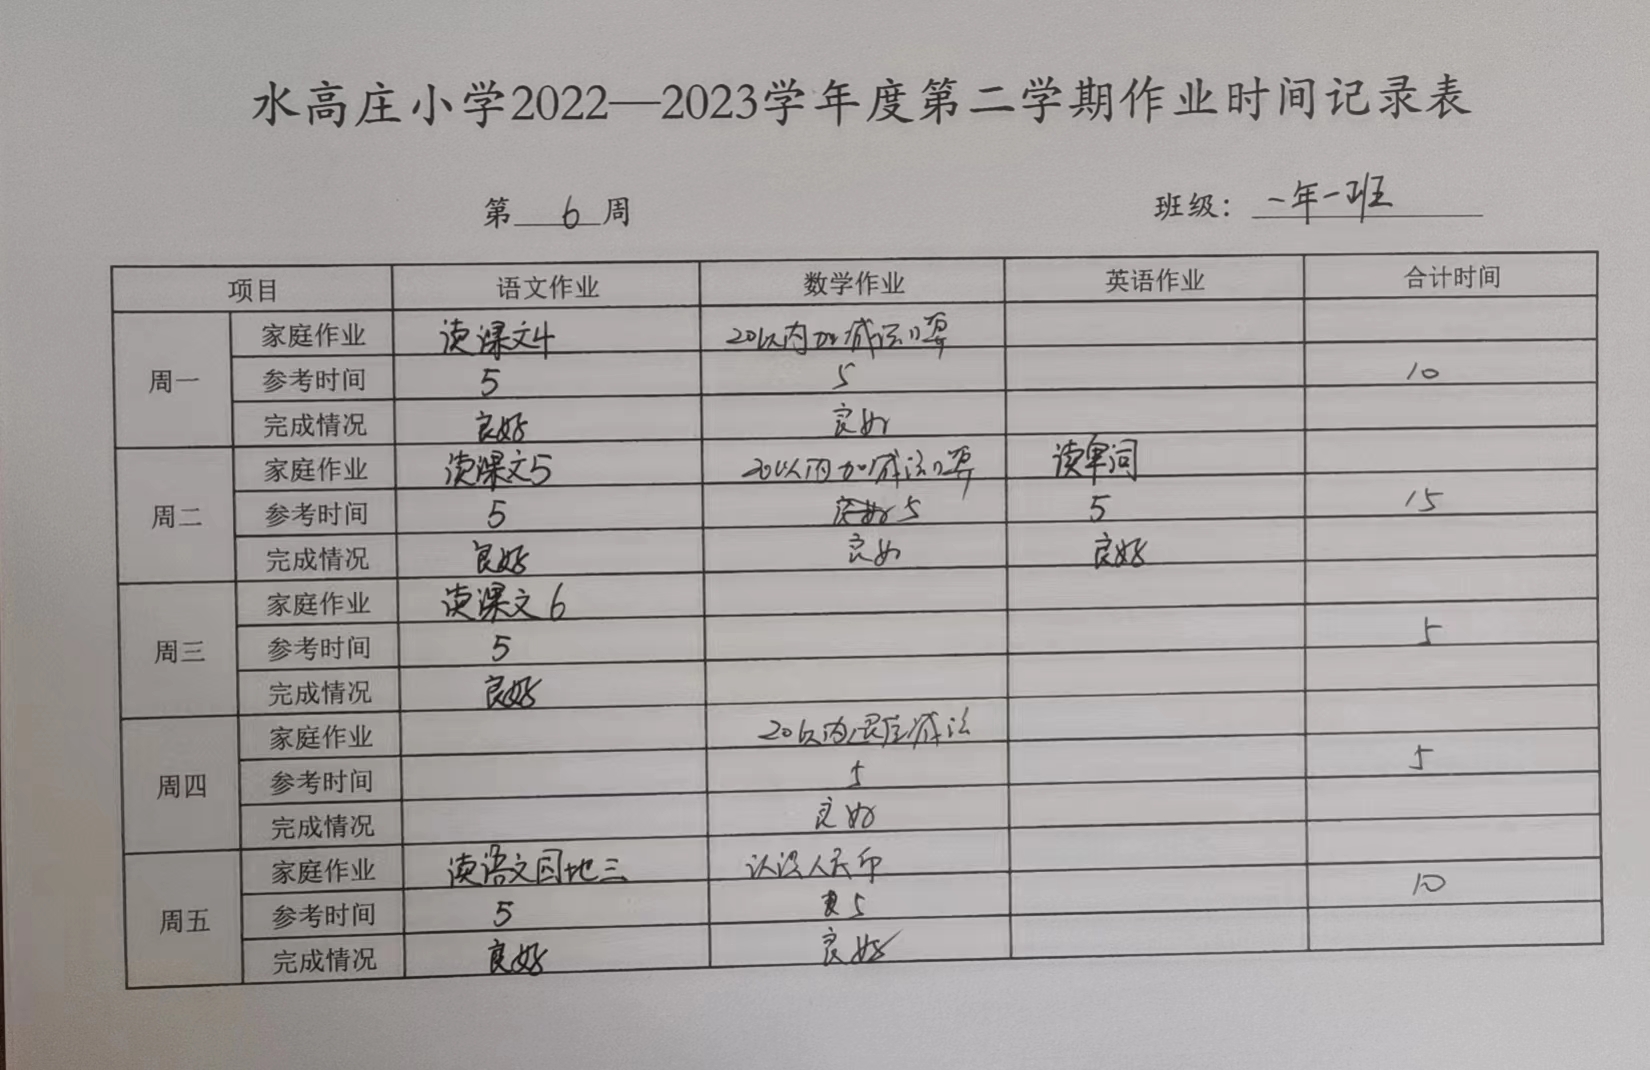 水高庄小学2022—2023学年度第二学期作业时间记录表
第 6 周 班级: 一年一班
项目 语文作业 数学作业 英语作业 合计时间
周一
家庭作业 读课文4 20以内加减法口算
参考时间 5 5 10
完成情况 良好 良好
周二
家庭作业 读课文5 20以内加减法口算 读单词
参考时间 5 5 5 15
完成情况 良好 良好 良好
周三
家庭作业 读课文6
参考时间 5 5
完成情况 良好
周四
家庭作业 20以内退位减法
参考时间 5 5
完成情况 良好
周五
家庭作业 读语文园地三 认识人民币
参考时间 5 5 10
完成情况 良好 良好